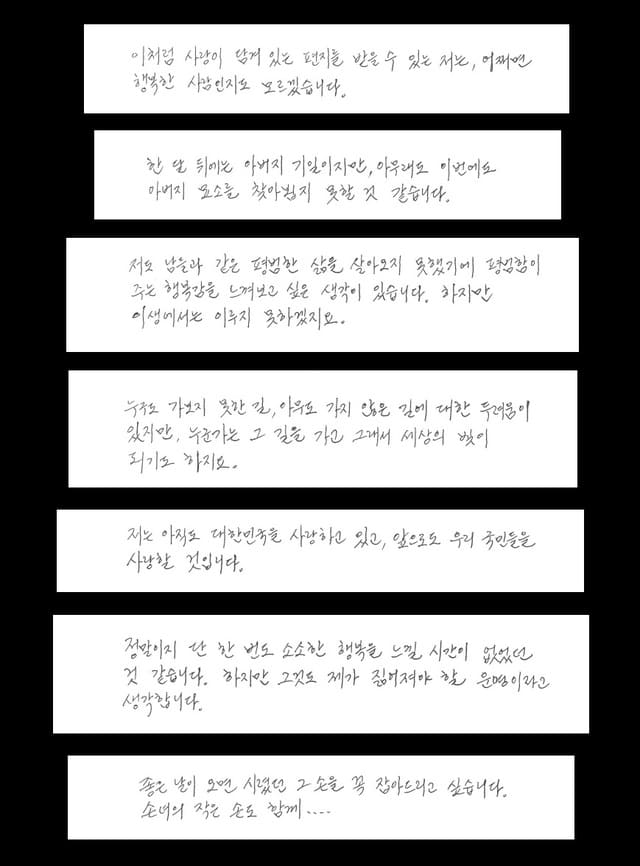 이처럼 사랑이 담겨 있는 편지를 받을 수 있는 저는, 어쩌면
행복한 사람인지도 모르겠습니다.
한 달 뒤에는 아버지 기일이지만, 아무래도 이번에도
아버지 묘소를 찾아뵙지 못할 것 같습니다.
저도 남들과 같은 평범한 삶을 살아오지 못했기에 평범함이
주는 행복감을 느껴보고 싶은 생각이 있습니다. 하지만
이생에서는 이루지 못하겠지요.
누구도 가보지 못한 길, 아무도 가지 않은 길에 대한 두려움이
있지만, 누군가는 그 길을 가고 그래서 세상의 빛이
되기도 하지요.
저는 아직도 대한민국을 사랑하고 있고, 앞으로도 우리 국민들을
사랑할 것입니다.
정말이지 단 한 번도 소소한 행복을 느낄 시간이 없었던
것 같습니다. 하지만 그것도 제가 짊어져야 할 운명이라고
생각합니다.
좋은 날이 오면 시렸던 그 손을 꼭 잡아드리고 싶습니다.
손녀의 작은 손도 함께....